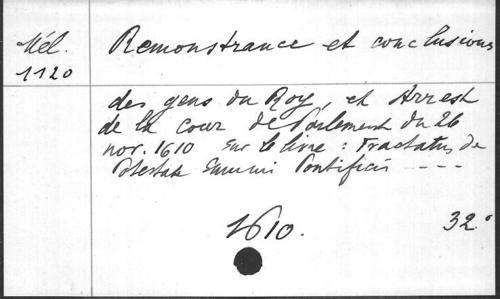 Mél.
1120
Remonstrance et conclusions
des gens du Roy, et Arrest
de la cour de Parlement du 26
nov. 1610 sur le livre : Tractatus de
Potestate Summi Pontificis ----
1610.
32°